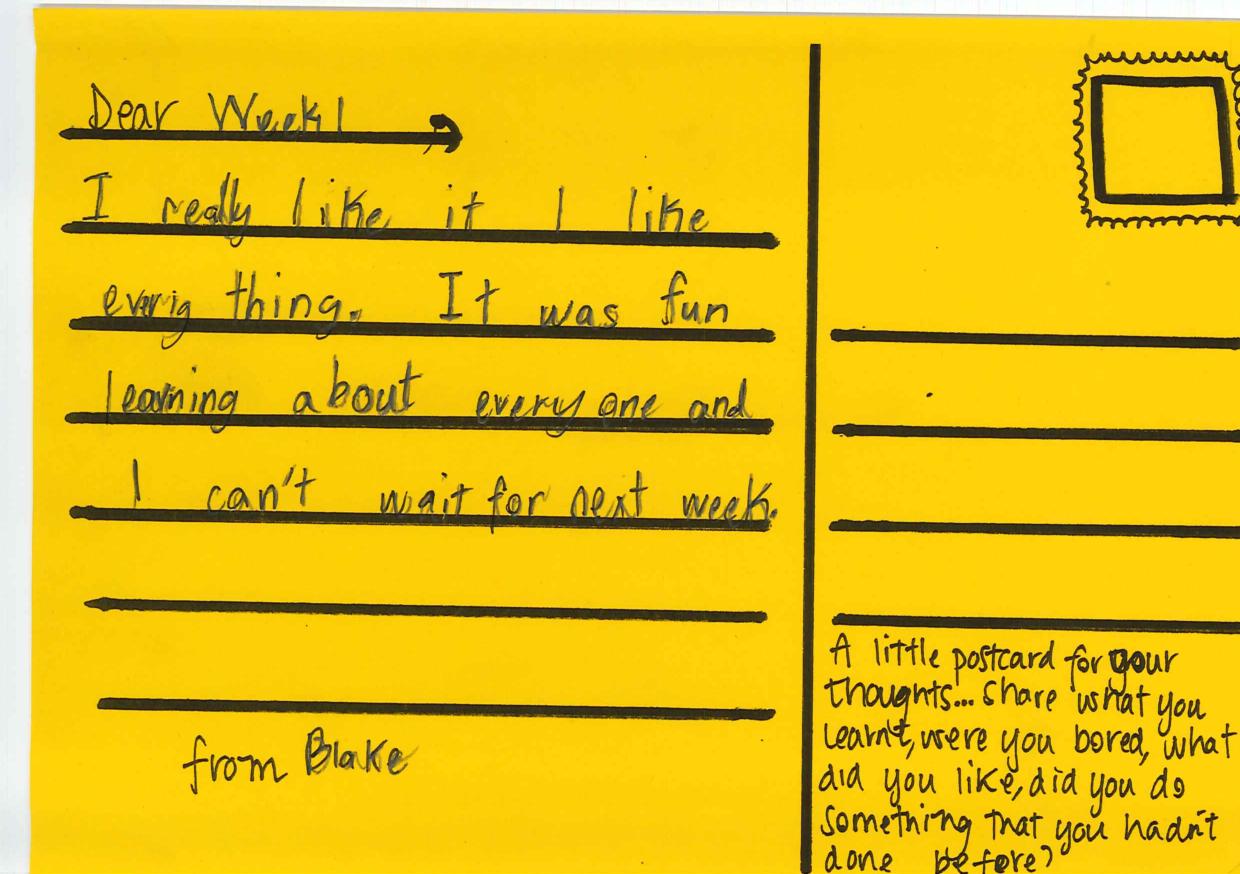 Dear Week 1
I really like it I like
everig thing. It was fun
learning about every one and
I can't wait for next week.
from Blake
A little postcard for your
thoughts... Share what you
learnt, were you bored, what
did you like, did you do
something that you hadn't
done before?